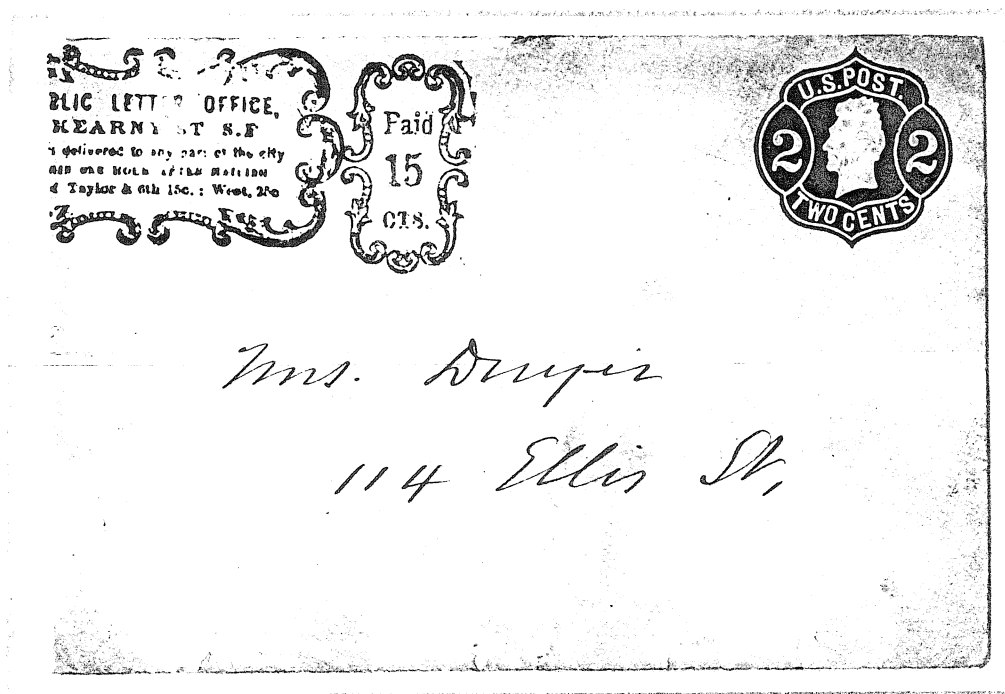 BLIC LETT OFFICE,
KEARNY ST S.F
delivered to any part of the city
ONE HOUR AFTER
d Taylor & 6th 15c. : West, 25c
Paid
15
CTS.
U.S. POST.
2 2
TWO CENTS
Mrs. Dwyer
114 Ellis St,